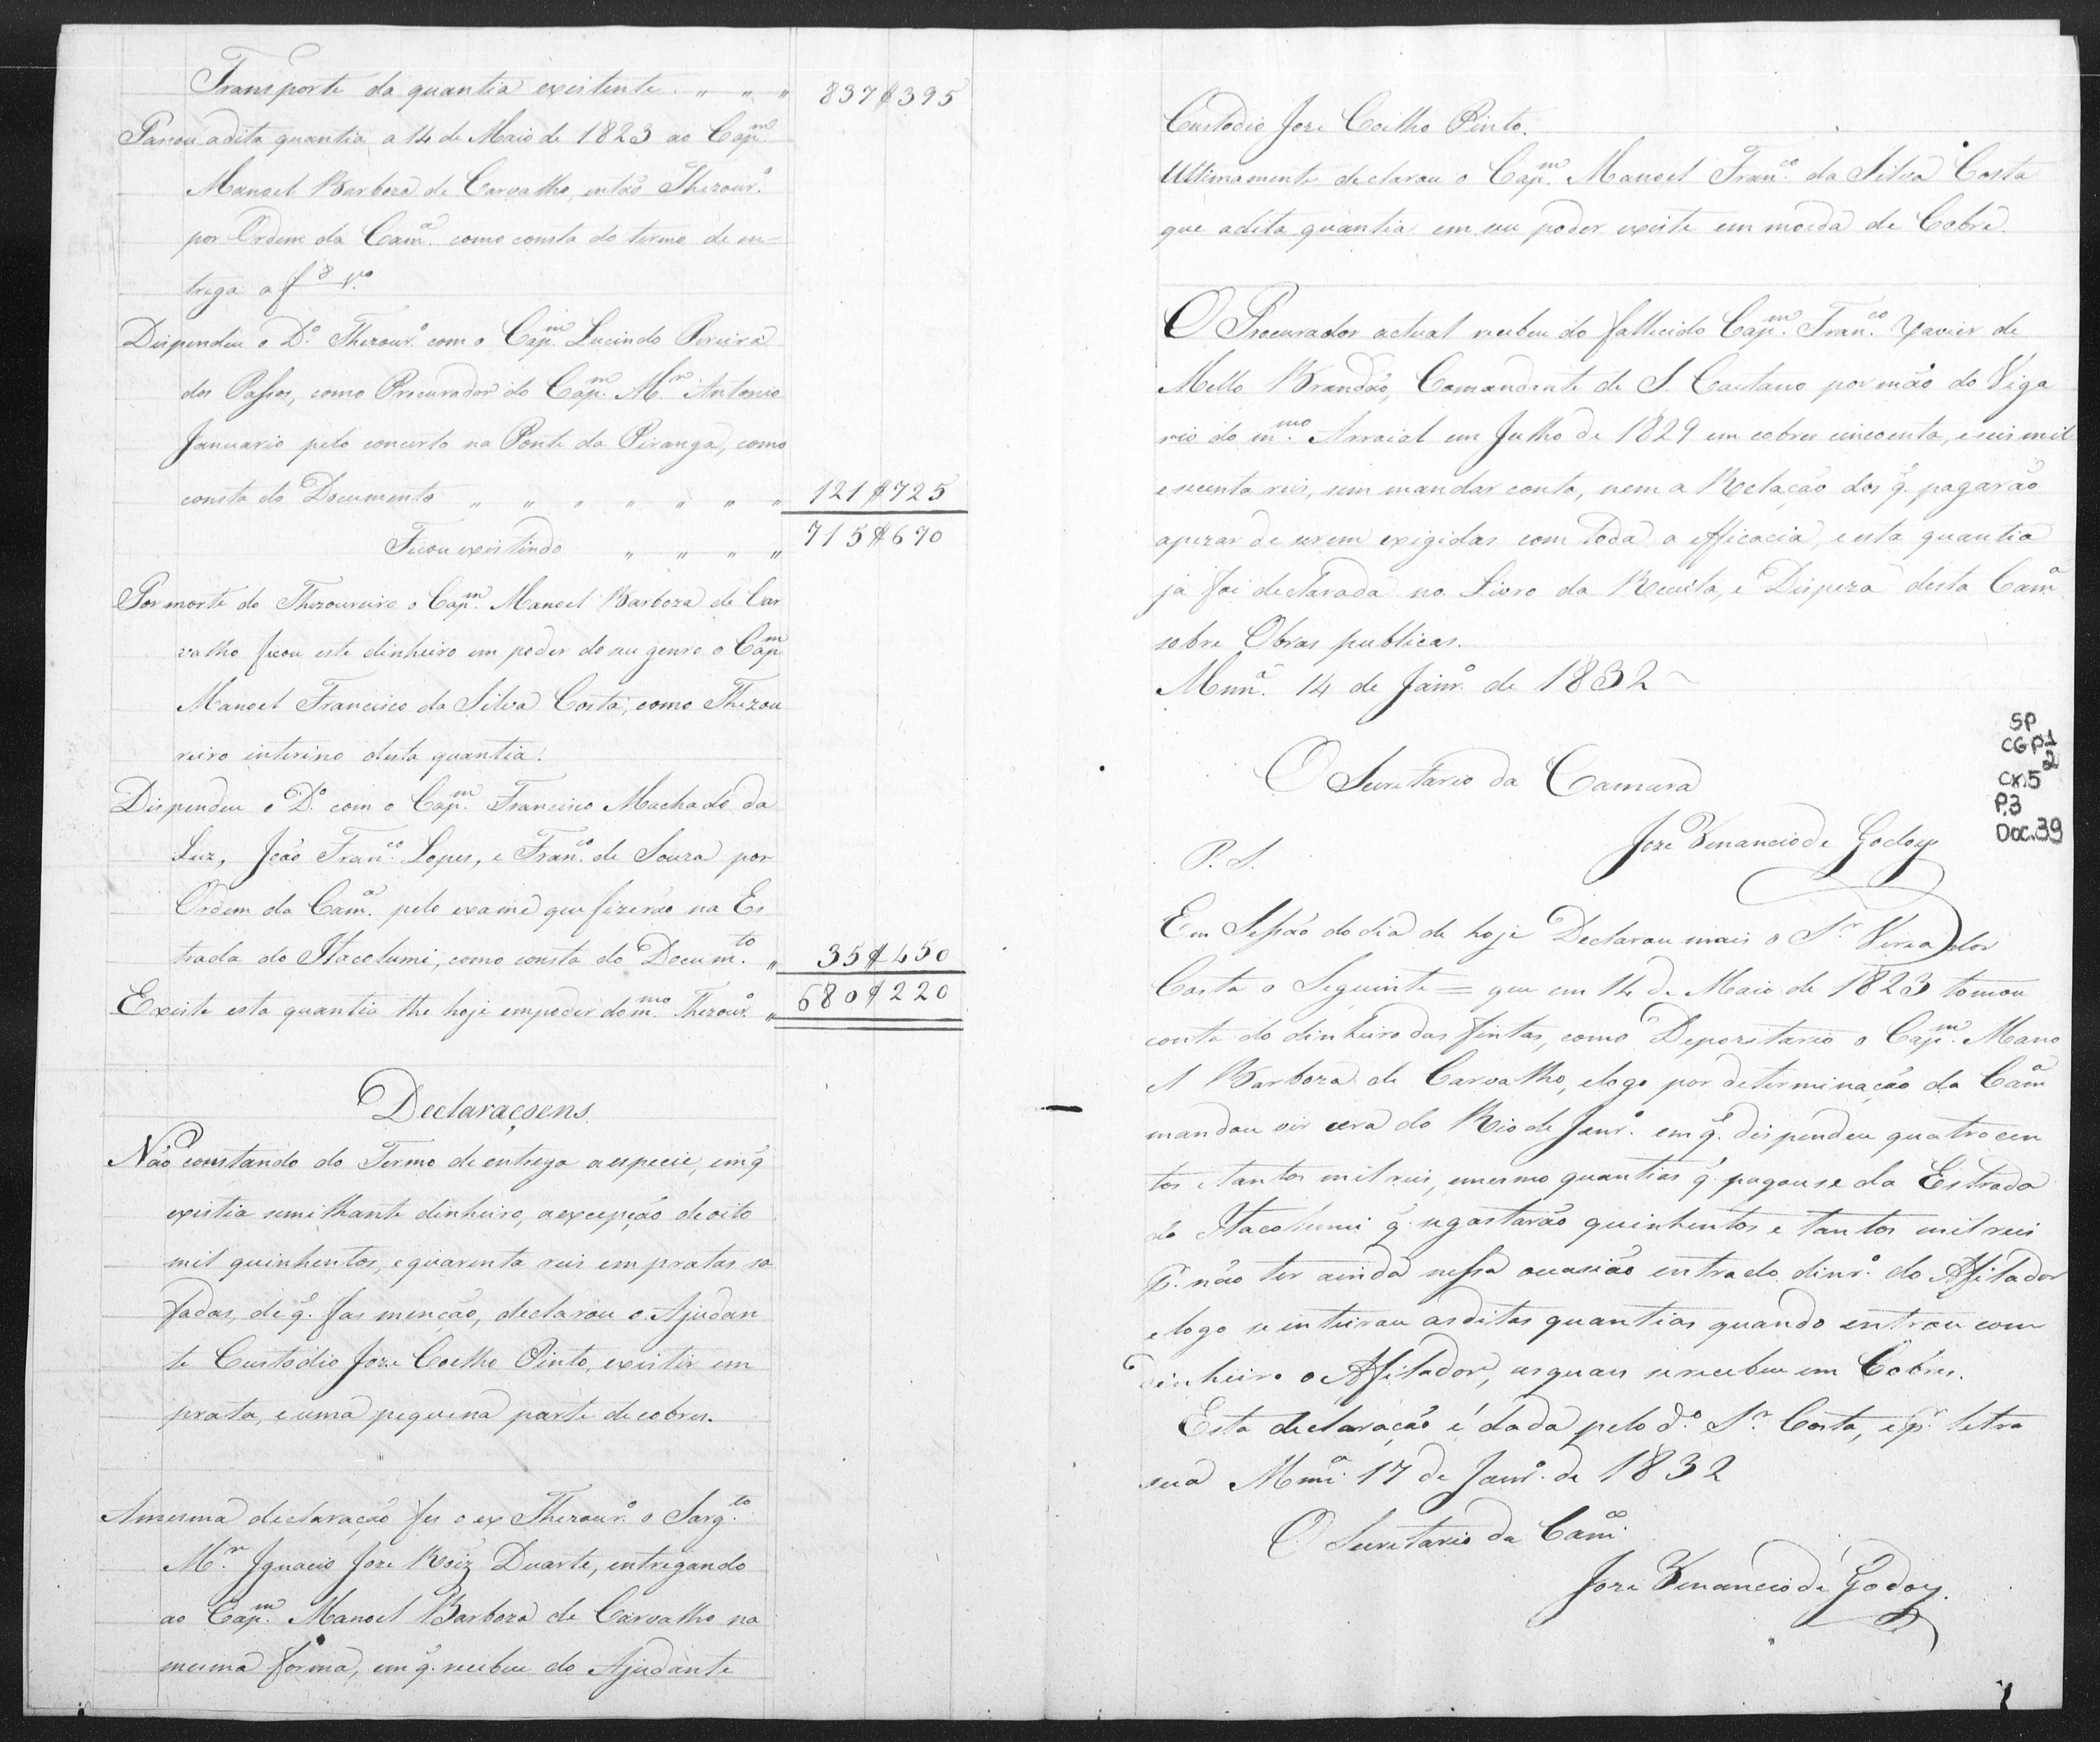 Transporte da quantia existente " " " 837$395
Passou adita quantia a 14 de Maio de 1823 ao Cap.m
Manoel Barboza de Carvalho, então Thezour.o
por Ordem da Cam.a como consta do termo de en=
trega a f 8 v.o
Dispendeu o D.o Thezour.o com o Cap.m Lucindo Pereira
dos Passos, como Procurador do Cap.m M.r Antonio
Januario pelo concerto na Ponte da Piranga, como
consta do Documento " " " " " " " 121$725
Ficou existindo " " " " 715$670
Por morte do Thezoureiro o Cap.m Manoel Barboza de Car
valho ficou este dinheiro em poder do seu genro o Cap.m
Manoel Francisco da Silva Costa, como Thezou
reiro interino desta quantia.
Dispendeu o D.o com o Cap.m Francisco Machado da
Luz, João Fran.co Lopes, e Fran.co de Souza por
Ordem da Cam.a pelo exame que fizerão na Es
trada do Itacolumi, como consta do Docum.to " 35$450
Existe esta quantia the hoje empoder dom.mo Thezour.o " 680$220
Declaraçoens
Não constando do Termo de entrega a especie, em q̃
existia semilhante dinheiro, a excepção de oito
mil quinhentos, e quarenta reis em pratas sa
fadas, de q̃. fas menção, declarou o Ajudan
te Custodio Joze Coelho Pinto, existir em
prata, e uma pequena parte de cobres.
Amesma declaração fes o ex Thezour.o o Sarg.to
M.r Ignacio Joze Roiz Duarte, entregando
ao Cap.m Manoel Barboza de Carvalho na
mesma forma, em q̃. recebeu do Ajudante
Custodio Joze Coelho Pinto.
Ultimamente declarou o Cap.m Manoel Fran.co da Silva Costa
que adita quantia em seu poder existe em moeda de Cobre.
O Procurador actual recebeu do fallecido Cap.m Fran.co Xavier de
Mello Brandão, Comandante de S. Caetano por mão do Viga
rio do m.mo Arraial em Julho de 1829 em cobres cincoenta, e seis mil
e secenta reis, sem mandar conta, nem a Relação dos q̃. pagarão
apezar de serem exigidas com toda a efficacia, e esta quantia
já foi declarada no Livro da Receita, e Dispeza desta Cam.a
sobre Obras publicas.
Mnn.a 14 de Janr.o de 1832
O Secretario da Camara
Joze Venancio de Godoy
SP
CGP1
2
CX.5
P.3
Doc.39
P. S.
Em Sessão do dia de hoje Declarou mais o S.r Vereador
Costa o Seguinte = que em 14 de Maio de 1823 tomou
conta do dinheiro das fintas, como Depozitario o Cap.m Mano
el Barboza de Carvalho, e logo por determinação da Cam.a
mandou vir cera do Rio de Janr.o em q̃. dispendeu quatrocen
tos e tantos mil reis, e mesmo quantias q̃ pagouse da Estrada
do Itacolumi q̃. se gastarão quinhentos e tantos mil reis
p.r não ter ainda nessa occasião entrado dinr.o do Afilador
e logo se inteirou as ditas quantias quando entrou com
dinheiro o Afilador, as quaes se recebeu em Cobres.
Esta declaração é dada pelo d.o S.r Costa, e p.r letra
sua Mnn.a 17 de Janr.o de 1832
O Secretario da Cam.a
Joze Venancio de Godoy.